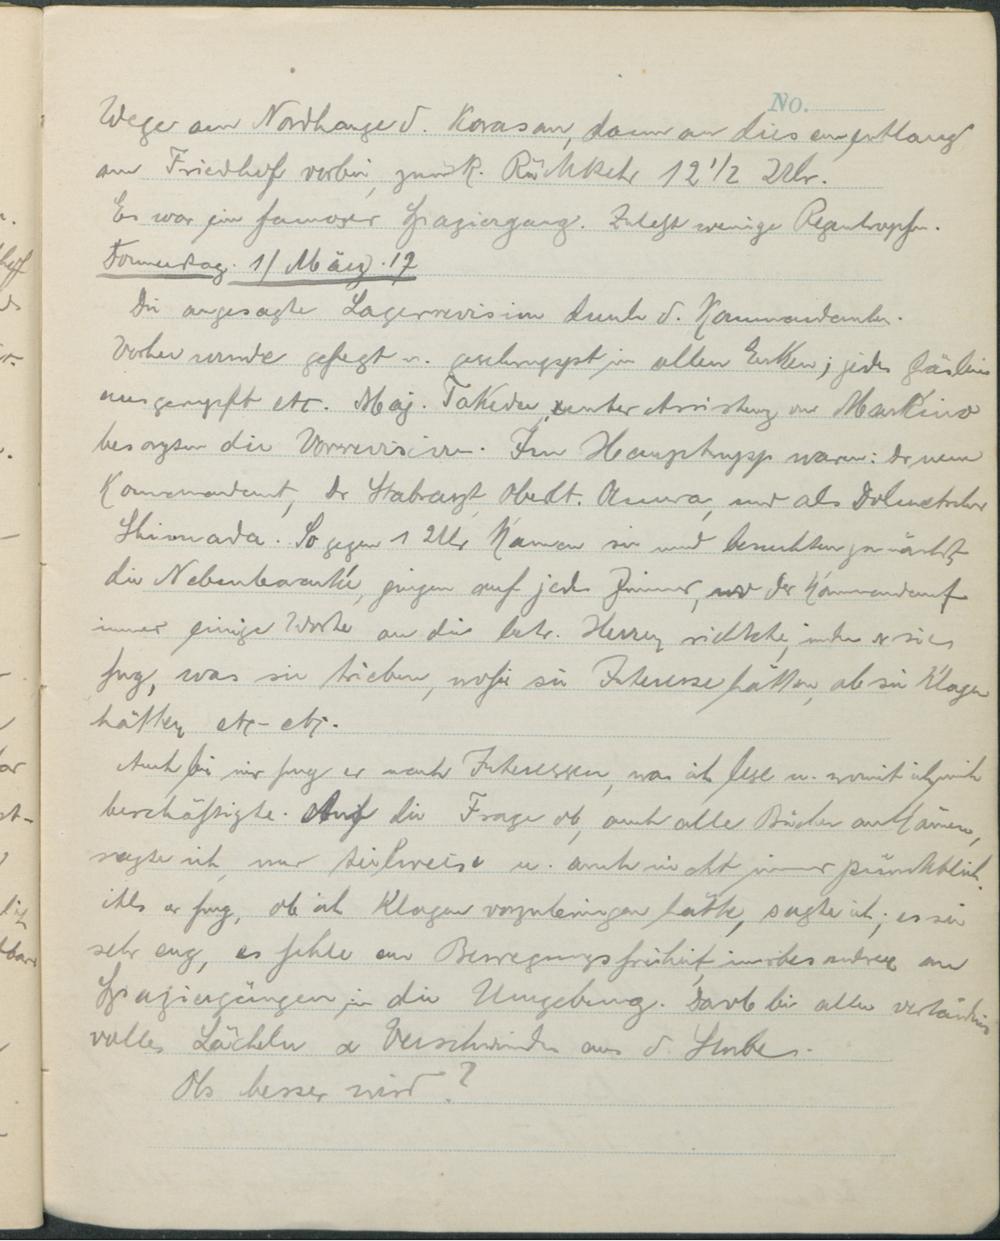 No.
Wege am Nordhange d. Korasan, dann an dies em entlang
am Friedhof vorbei, zurück. Rückkehr 12 1/2 Uhr.
Es war ein famoser Spaziergang. Zuletzt wenige Regentropfen.
Donnerstag. 1/ März. 17
Die angesagte Lagerrevision durch d. Kommandanten.
Vorher wurde gefegt u. geschruppt in allen Ecken; jedes Gräslein
ausgerupft etc. Maj. Takeda, unter Assistenz von Markino
besorgten die Vorrevision. Im Haupttrupp waren: Der neue
Kommandant, der Stabsarzt, Obelt. Omura, und als Dolmetscher
Shimada. So gegen 1 Uhr kamen sie und besuchten zunächst
die Nebenbaracke, gingen auf jedes Zimmer, wo der Kommandant
immer einige Worte an die betr. Herren richtete, indem er sie
frug, was sie trieben, wofür sie Interesse hätten, ob sie Klagen
hätten etc- etc.
Auch bei mir frug er nach Interessen, was ich lese u. womit ich mich
beschäftigte. Auf die Frage ob, auch alle Bücher ankämen,
sagte ich, nur teilweise u. auch nicht immer pünktlich.
Als er frug, ob ich Klagen vorzubringen hätte, sagte ich; es sei
sehr eng, es fehle an Bewegungsfreiheit, insbesondere an
Spaziergängen in die Umgebung. Darob bei allen verständnis
volles Lächeln & Verschwinden aus d. Stube.
Obs besser wird?